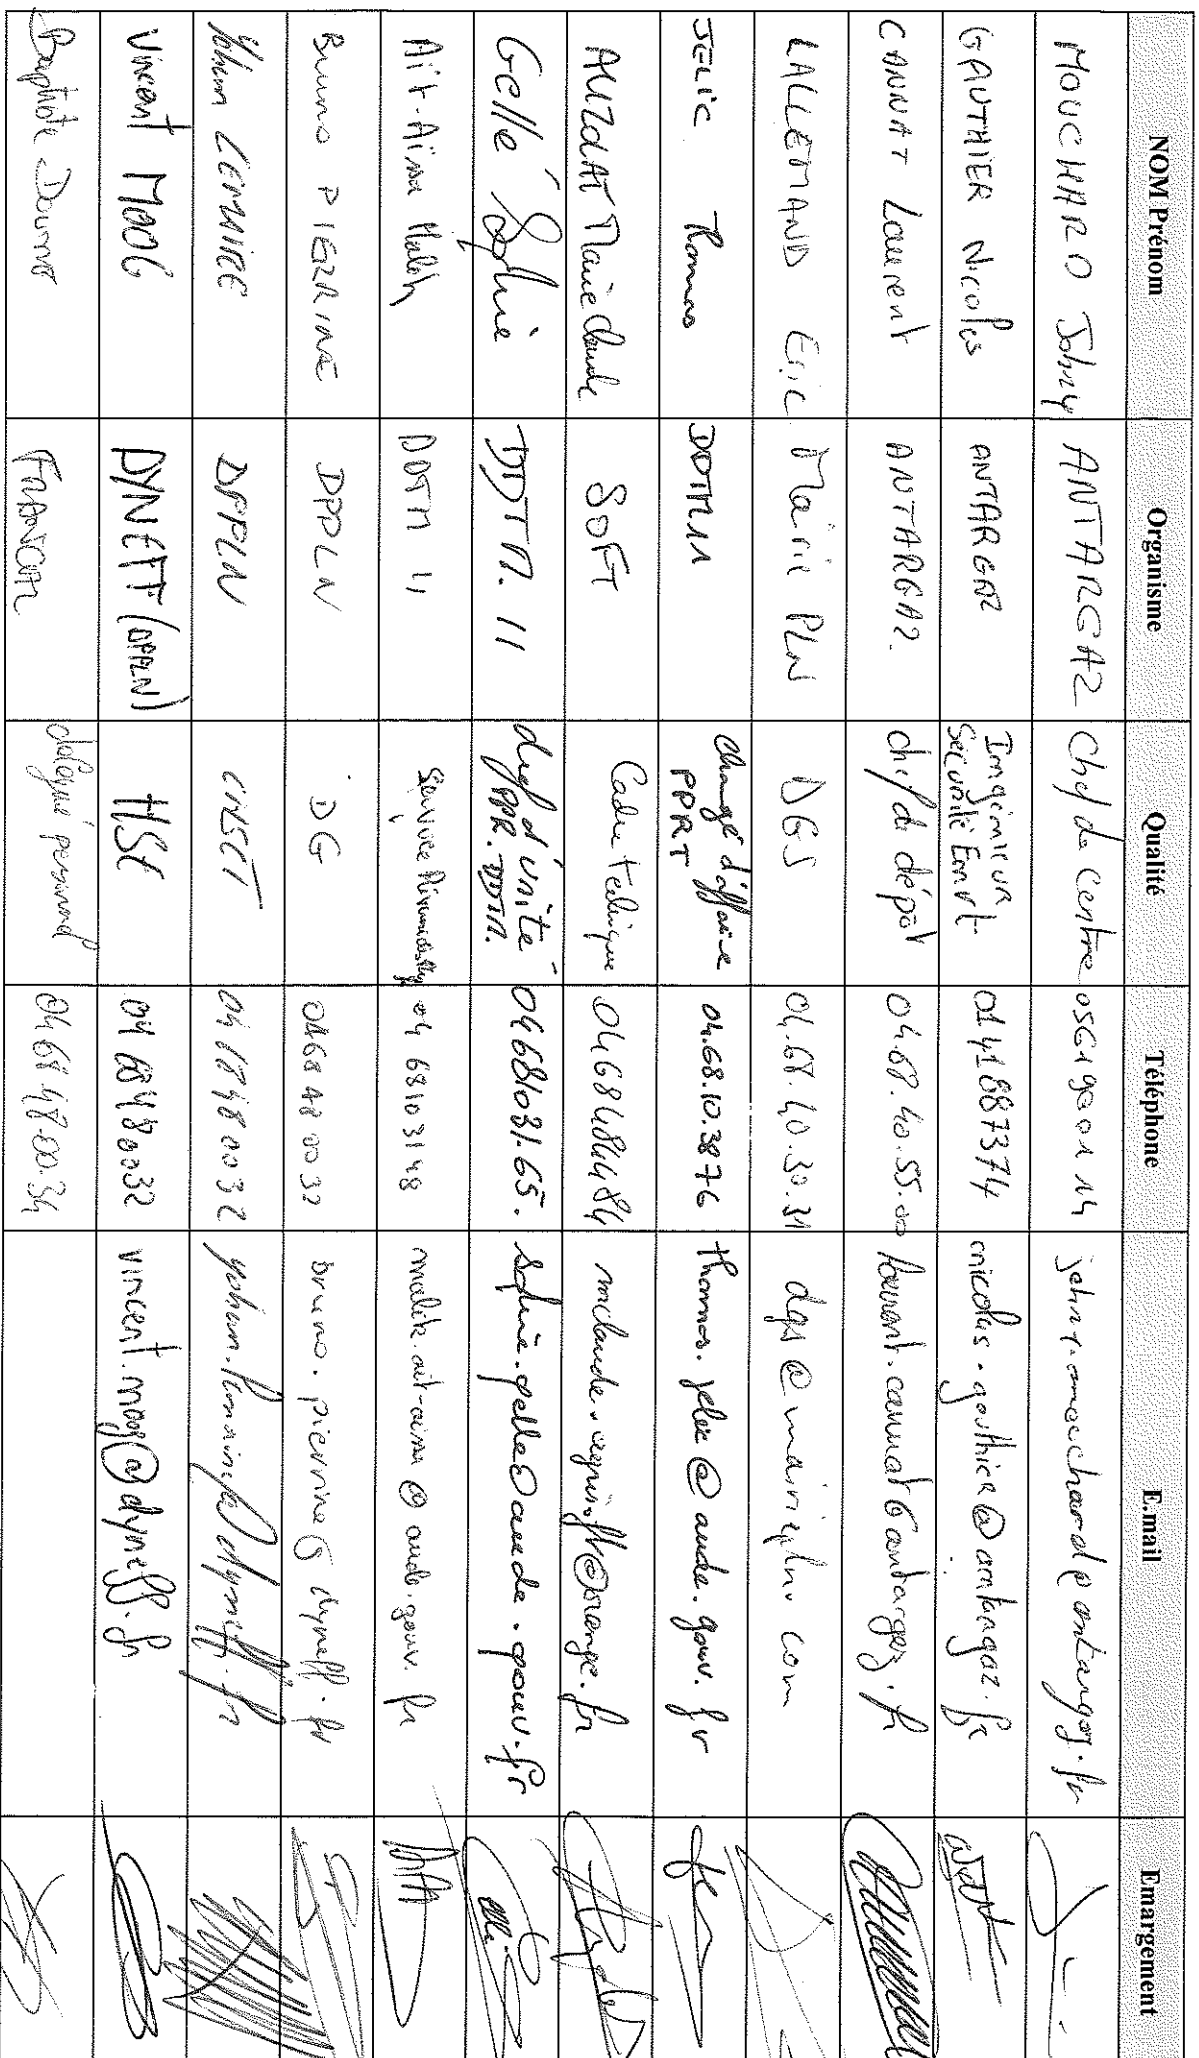 NOM Prénom Organisme Qualité Téléphone E.mail Emargement
MOUCHARD Johny ANTARGAZ Chef de Centre 0561900114 johny.mouchard@antargaz.fr
GAUTHIER Nicolas ANTARGAZ Ingénieur Sécurité Envt 0141887374 nicolas.gauthier@antargaz.fr
CANNAT Laurent ANTARGAZ. chef de dépôt 04.68.40.55.00 laurent.cannat@antargaz.fr
LALLEMAND Eric Mairie PLN DGS 04.68.40.30.31 dgs@mairiepln.com
JELIC Thomas DDTM11 Chargé d'affaire PPRT 04.68.10.3876 thomas.jelic@aude.gouv.fr
AUZDAT Marie Claude SOFT Cadre technique 0468484484
Gellé Sylvie DDTM. 11 chef d'unité PPR. DDTM. 0468103165. sylvie.gelle@aude.gouv.fr
Ait-Aissa Malik DDTM 11 Service 04 68103148 malik.ait-aissa@aude.gouv.fr
Bruno PIERRINE DPPLN DG 0468480032 bruno.pierrine@dyneff.fr
Yohann LEMAIRE DPPLN CHSCT 0468480032 yohann.lemaire@dyneff.fr
Vincent MOOG DYNEFF (DPPLN) HSE 0468480032 vincent.moog@dyneff.fr
Baptiste FRANGAZ délégué personnel 04 68 48.00.34